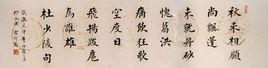 秋來相顧
尚飄蓬
未就丹砂
愧葛洪
痛飲狂歌
空度日
飛揚跋扈
爲誰雄
杜少陵句